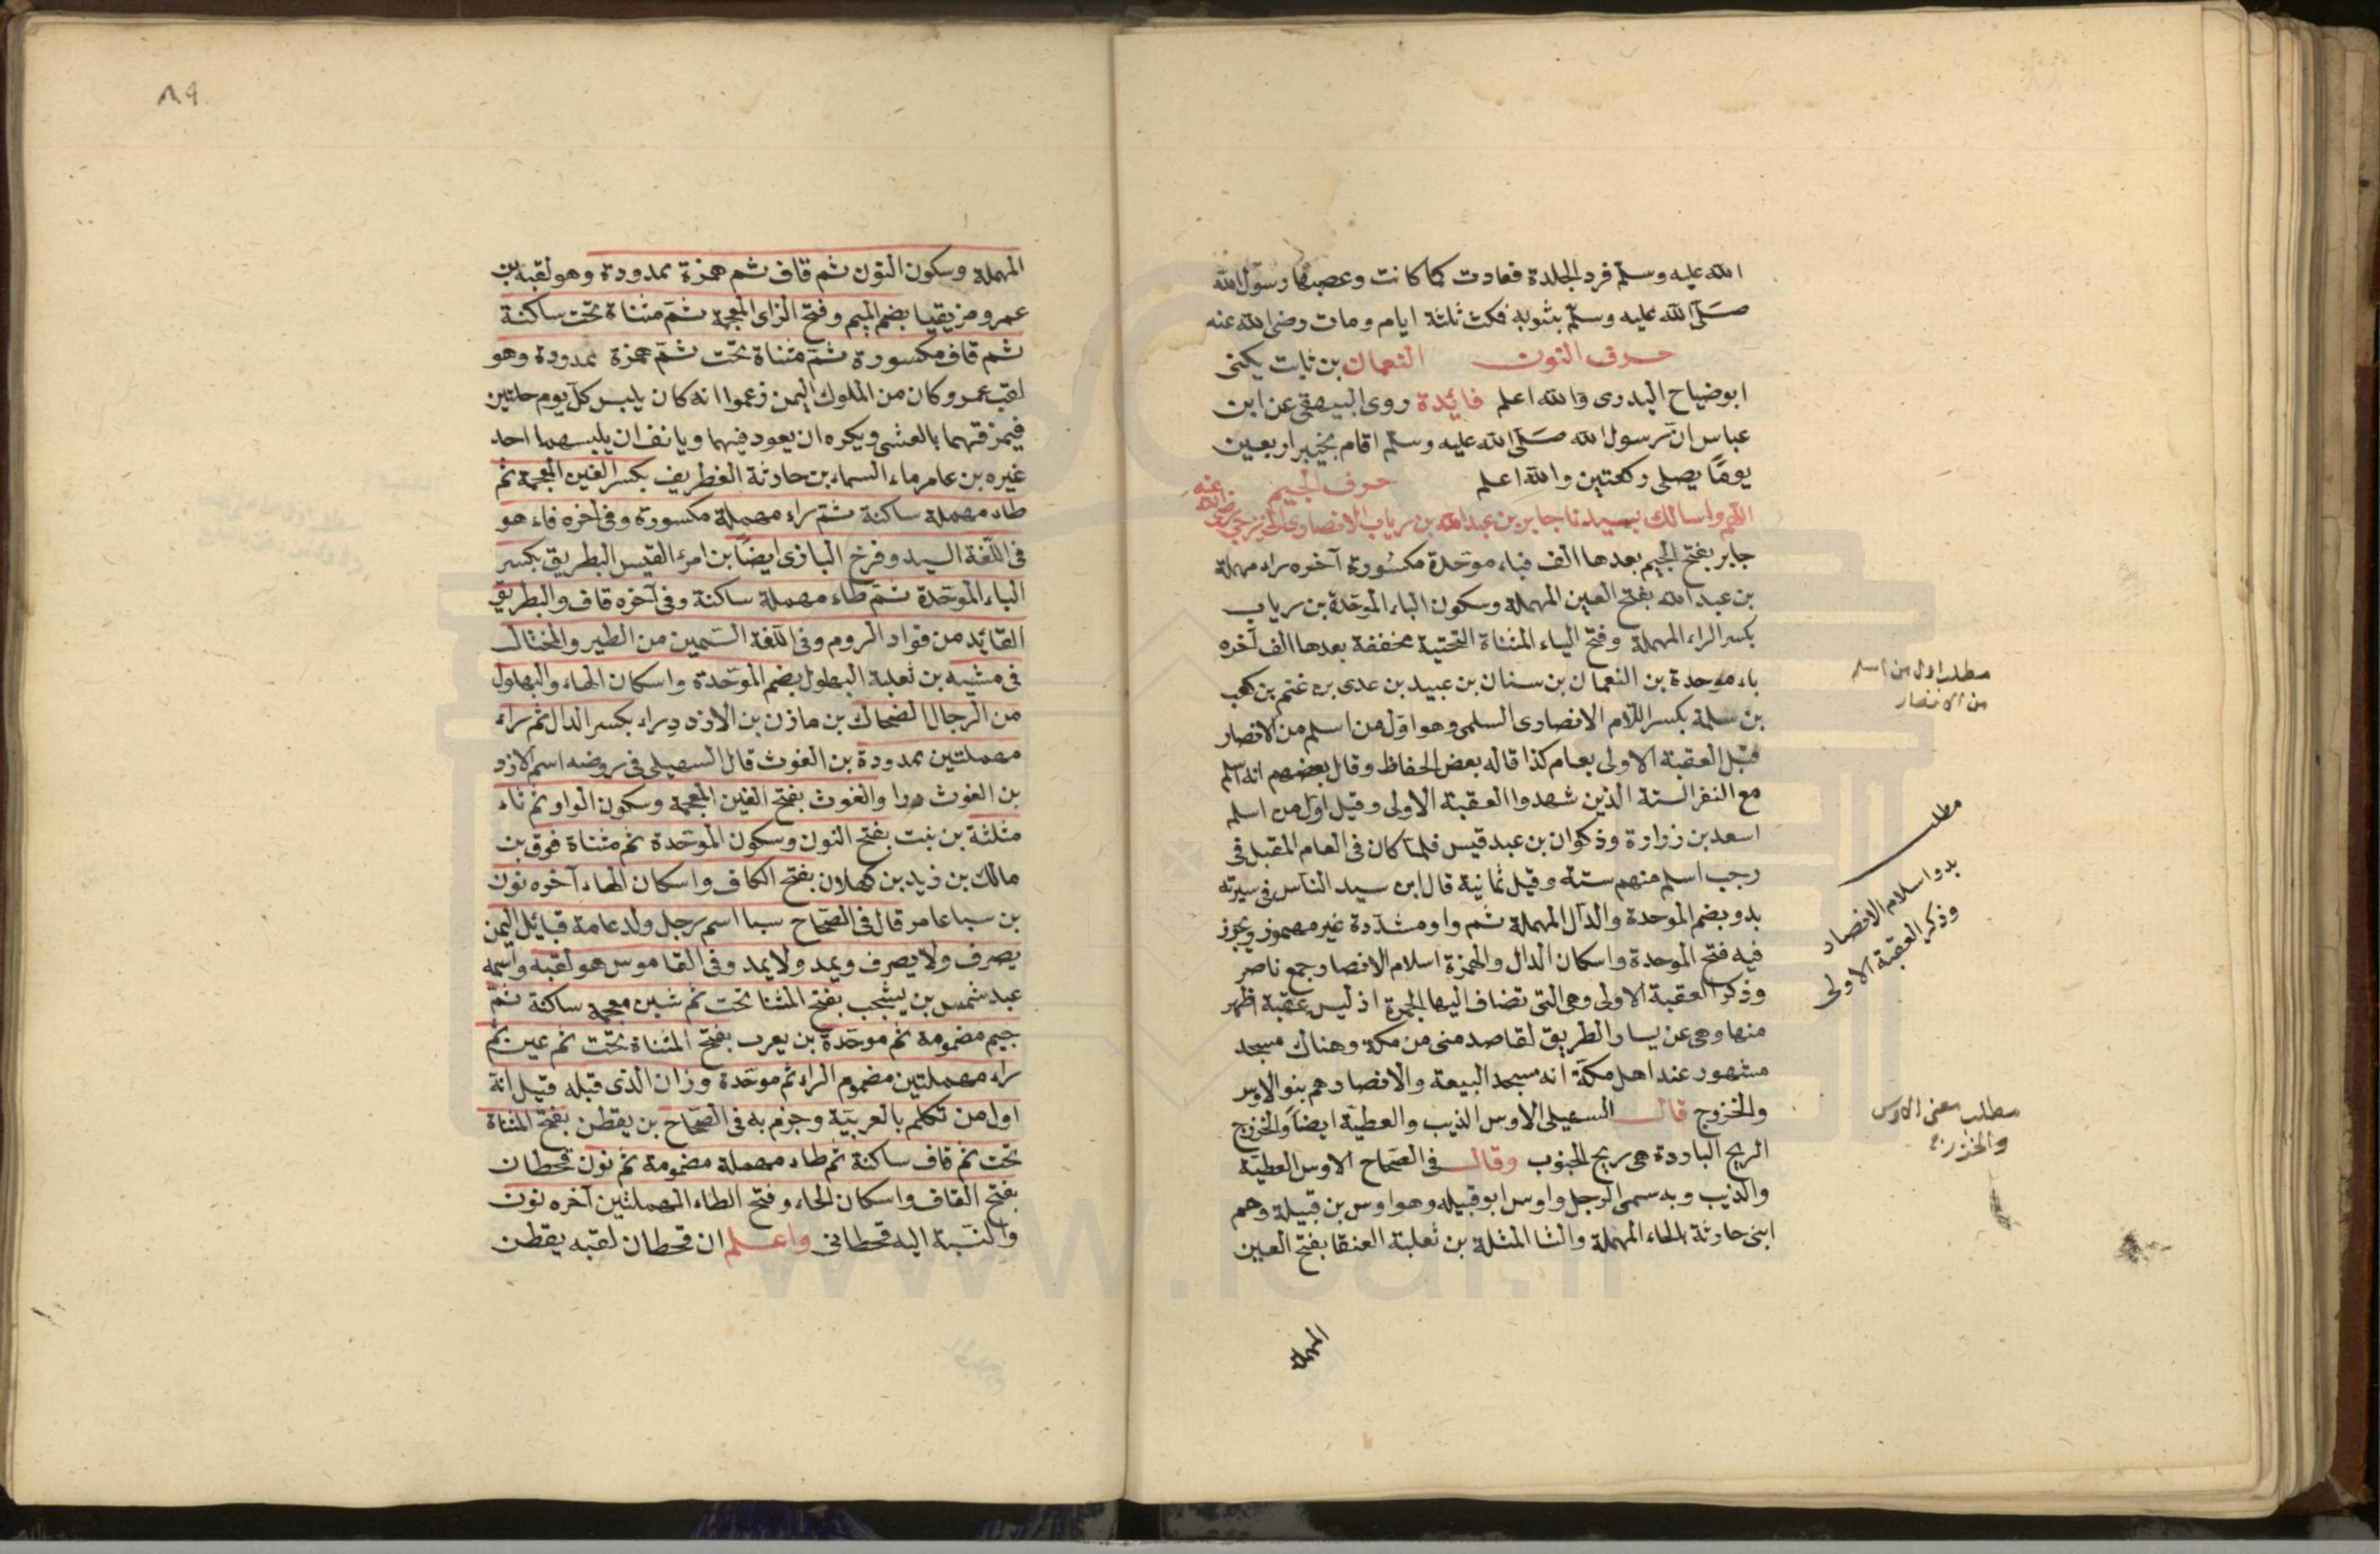 الله عليه وسلم فرد الجلدة فعادت كما كانت وعصبها رسول الله
صلى الله عليه وسلم بثوبه فمكث ثلثة ايام ومات رضى الله عنه
حرف النون النعمان بن ثابت يكنى
ابوضياح البدرى والله اعلم فائدة روى البيهقى عن ابن
عباس ان رسول الله صلى الله عليه وسلم اقام بخيبر اربعين
يومًا يصلى ركعتين والله اعلم حرف الجيم
اللهم واسالك بسيدنا جابر بن عبد الله بن رياب الانصارى الخزرجى رضى الله عنه
جابر بفتح الجيم بعدها الف فباء موحدة مكسورة آخره راء مهملة
بن عبد الله بفتح العين المهملة وسكون الباء الموحدة بن رياب
بكسر الراء المهملة وفتح الياء المثناة التحتية مخففة بعدها الف آخره
باء موحدة بن النعمان بن سنان بن عبيد بن عدى بن غنم بن كعب
بن سلمة بكسر اللام الانصارى السلمى وهو اول من اسلم من الانصار
قبل العقبة الاولى بعام كذا قاله بعض الحفاظ وقال بعضهم انه اسلم
مع النفر الستة الذين شهدوا العقبة الاولى وقيل اول من اسلم
اسعد بن زرارة وذكوان بن عبد قيس فلما كان فى العام المقبل فى
رجب اسلم منهم ستة وقيل ثمانية قال ابن سيد الناس فى سيرته
بدو بضم الموحدة والدال المهملة ثم واو مشددة غير مهموز ويجوز
فيه فتح الموحدة واسكان الدال والهمزة اسلام الانصار جمع ناصر
وذكر العقبة الاولى وهى التى تضاف اليها الجمرة اذ ليس عقبة اظهر
منها وهى عن يسار الطريق لقاصد منى من مكة وهناك مسجد
مشهور عند اهل مكة انه مسجد البيعة والانصار هم بنو الاوس
والخزرج قال السهيلى الاوس الذيب والعطية ايضا والخزرج
الريح الباردة هى ريح الجنوب وقال فى الصحاح الاوس العطية
والذيب وبه سمى الرجل واوس ابو قبيله وهو اوس بن قيلة وهم
ابنى حارثة بالحاء المهملة والثا المثلثة بن ثعلبة العنقا بفتح العين
المهملة
مطلب اول من اسلم
من الانصار
مطلب
بدو اسلام الانصار
وذكر العقبة الاولى
مطلب معنى الاوس
والخزرج
٨٩
المهملة وسكون النون ثم قاف ثم همزة ممدودة وهو لقبه بن
عمرو مزيقيا بضم الميم وفتح الزاى المعجمة ثم مثناة تحت ساكنة
ثم قاف مكسورة ثم مثناة تحت ثم همزة ممدودة وهو
لقب عمرو كان من الملوك اليمن زعموا انه كان يلبس كل يوم حلتين
فيمزقهما بالعشى ويكره ان يعود فيهما ويانف ان يلبسهما احد
غيره بن عامر ماء السماء بن حارثة الغطريف بكسر الغين المعجمة ثم
طاء مهملة ساكنة ثم راء مهملة مكسورة وفى آخره فاء هو
فى اللغة السيد وفرخ البازى ايضًا بن امرئ القيس البطريق بكسر
الباء الموحدة ثم طاء مهملة ساكنة وفى آخره قاف والبطريق
القايد من قواد الروم وفى اللغة السمين من الطير والمختال
فى مشيه بن ثعلبة البهلول بضم الموحدة واسكان الهاء والبهلول
من الرجال الضحاك بن مازن بن الازد دراء بكسر الدال ثم راء
مهملتين ممدودة بن الغوث قال السهيلى فى روضه اسم الازد
بن الغوث درا والغوث بفتح الغين المعجمة وسكون الواو ثم ثاء
مثلثة بن نبت بفتح النون وسكون الموحدة ثم مثناة فوق بن
مالك بن زيد بن كهلان بفتح الكاف واسكان الهاء آخره نون
بن سبا عامر قال فى الصحاح سبا اسم رجل ولد عامة قبائل اليمن
يصرف ولا يصرف ويمد ولا يمد وفى القاموس هو لقبه واسمه
عبد شمس بن يشجب بفتح المثنا تحت ثم شين معجمة ساكنة ثم
جيم مضمومة ثم موحدة بن يعرب بفتح المثناة تحت ثم عين ثم
راء مهملتين مضموم الراء ثم موحدة وزان الذى قبله قيل انه
اول من تكلم بالعربية وجزم به فى الصحاح بن يقطن بفتح المثناة
تحت ثم قاف ساكنة ثم طاء مهملة مضمومة ثم نون قحطان
بفتح القاف واسكان الحاء وفتح الطاء المهملتين آخره نون
والنسبة اليه قحطانى واعلم ان قحطان لقبه يقطن